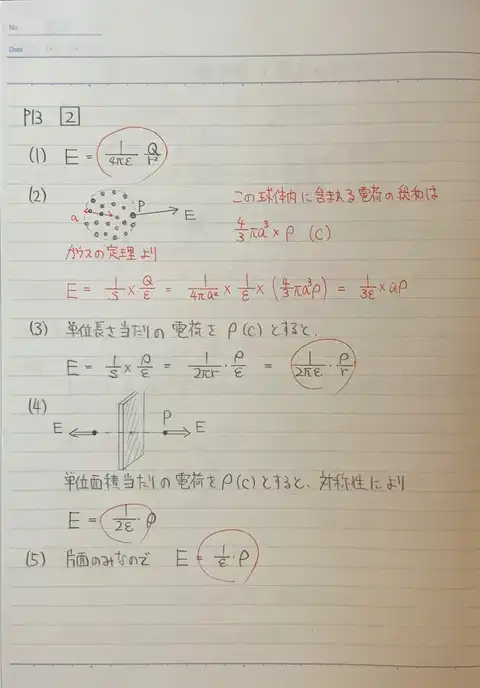 No
Date
P13 2
(1) E = 1/4πε Q/r²
(2) a P E この球体内に含まれる電荷の総和は
4/3 πa³ × ρ (C)
ガウスの定理より
E = 1/S × Q/ε = 1/4πa² × 1/ε × (4/3 πa³ρ) = 1/3ε × aρ
(3) 単位長さ当たりの電荷を ρ(C) とすると、
E = 1/S × ρ/ε = 1/2πr · ρ/ε = 1/2πε · ρ/r
(4) E P E
単位面積当たりの電荷を ρ(C) とすると、対称性により
E = 1/2ε · ρ
(5) 片面のみなので E = 1/ε · ρ